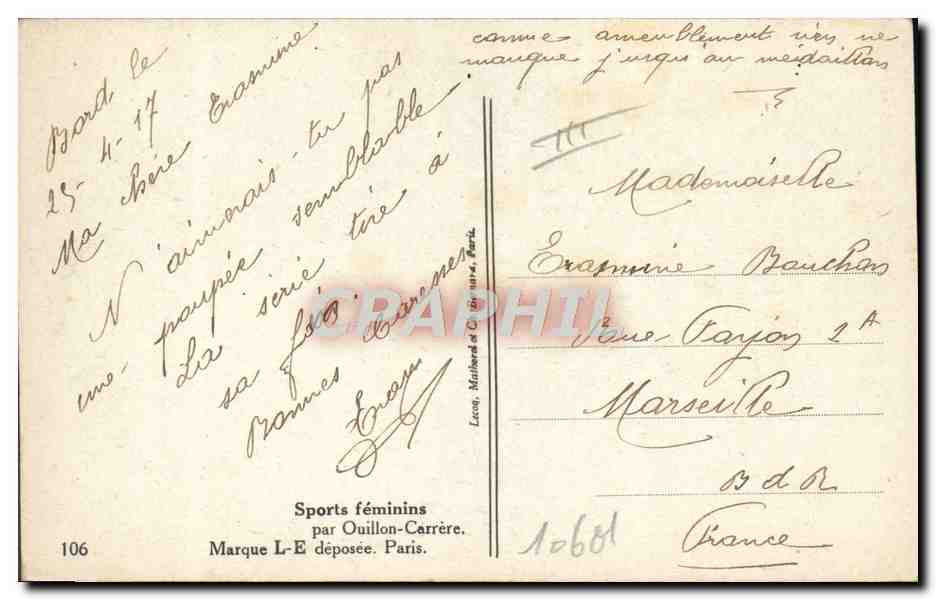 comme ameublement rien ne
manque jusqu'au médaillon
Bord le
25-4-17
Ma chère Erasmine
N'aimerais-tu pas
une poupée semblable -
La série tire à
sa fin.
Bonnes Caresses
III
Mademoiselle
Erasmine Bouchon
Rue Farjon 2A
Marseille
B d R
France
10681
Lecoq, Mathorel et Ch. Bernard, Paris.
CPAPHIL
Sports féminins
par Ouillon-Carrère.
106 Marque L-E déposée. Paris.